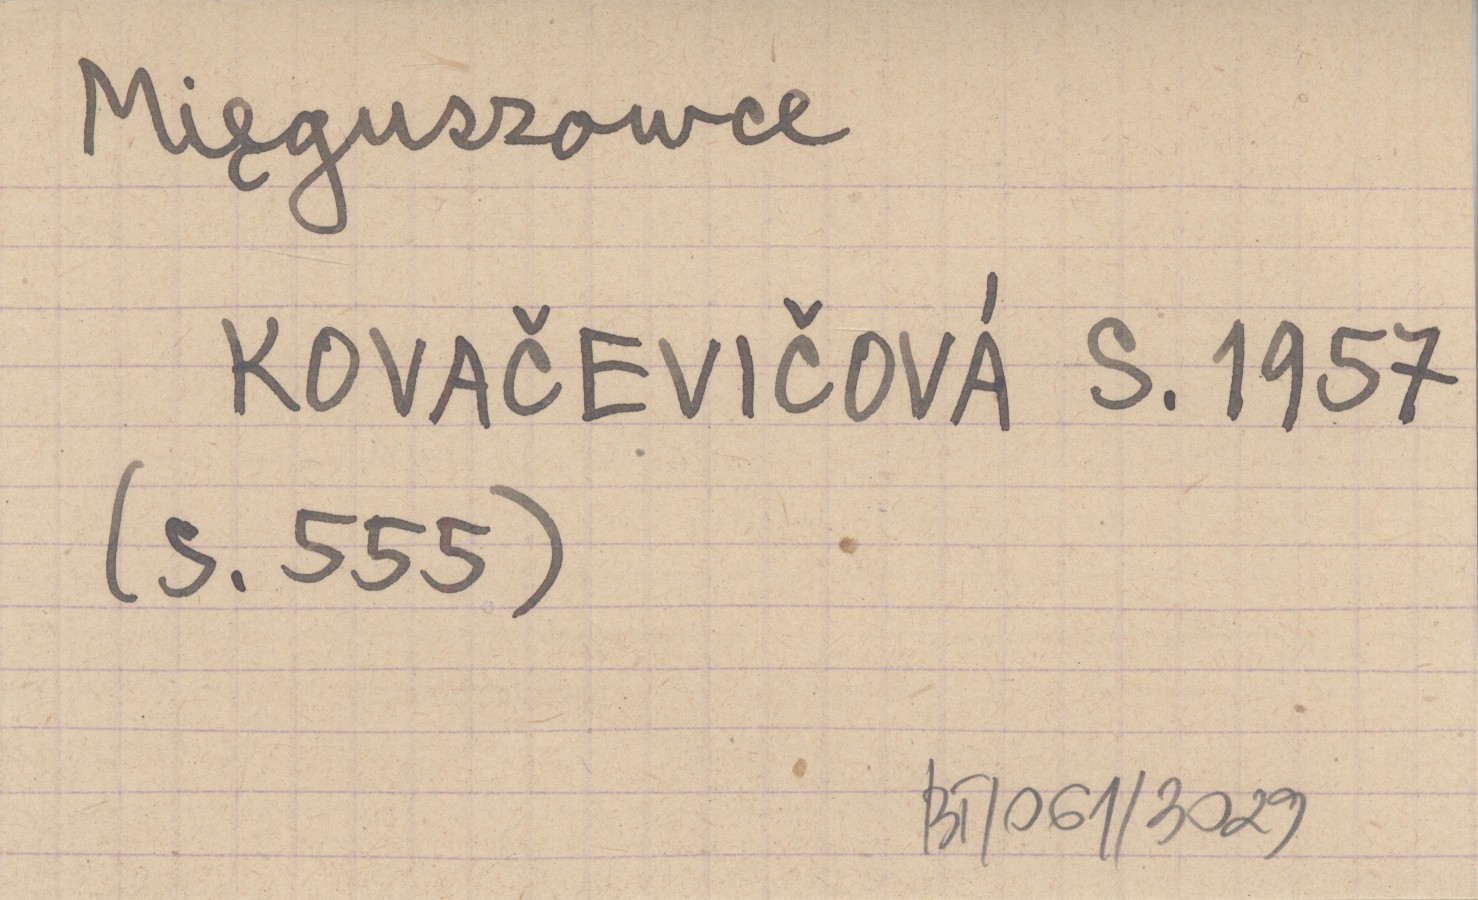 Mięguszowce
KOVAČEVIČOVÁ S. 1957
(s. 555)
BT/061/3029